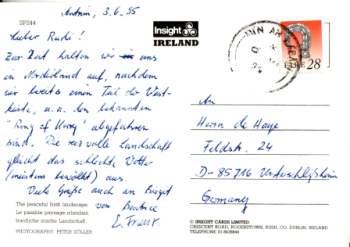 Antrim, 3.6.95
SP244
Lieber Rudi!
Zur Zeit halten wir uns
in Nordirland auf, nachdem
wir bereits einen Teil der West-
küste, u.a. den bekannten
"Ring of Kerry" abgefahren
sind. Die reizvolle Landschaft
gleicht das schlechte Wetter
(meistens bewölkt) aus.
Viele Grüße auch an Burgel
von Beatrice
The peaceful Irish landscape.
Le paisible paysage irlandais.
Friedliche irische Landschaft
PHOTOGRAPHY: PETER ZÖLLER
Insight
IRELAND
28
An
Herrn de Haye
Feldstr. 24
D-85716 Unterschleißheim
Germany
© INSIGHT CARDS LIMITED
CRESCENT ROAD, ROGERSTOWN, RUSH, CO. DUBLIN, IRELAND